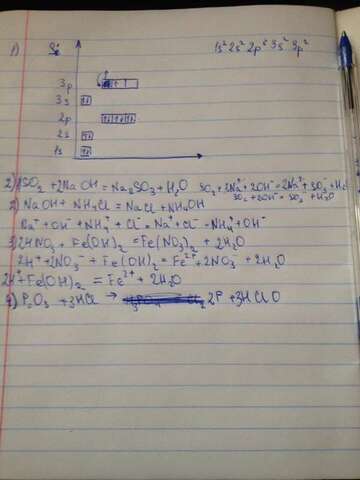 1) Si 1s² 2s² 2p⁶ 3s² 3p²
3p
3s
2p
2s
1s
2) 1) SO₂ + 2NaOH = Na₂SO₃ + H₂O SO₂ + 2Na⁺ + 2OH⁻ = 2Na⁺ + SO₃⁻ + H₂
SO₂ + 2OH⁻ = SO₃⁻ + H₂O
2) NaOH + NH₄Cl = NaCl + NH₄OH
Na⁺ + OH⁻ + NH₄⁺ + Cl⁻ = Na⁺ + Cl⁻ NH₄⁺ + OH⁻
3) 2HNO₃ + Fe(OH)₂ = Fe(NO₃)₂ + 2H₂O
2H⁺ + 2NO₃⁻ + Fe(OH)₂ = Fe²⁺ + 2NO₃⁻ + 2H₂O
2H⁺ + Fe(OH)₂ = Fe²⁺ + 2H₂O
4) P₂O₃ + 3HCl → 2P + 3HClO